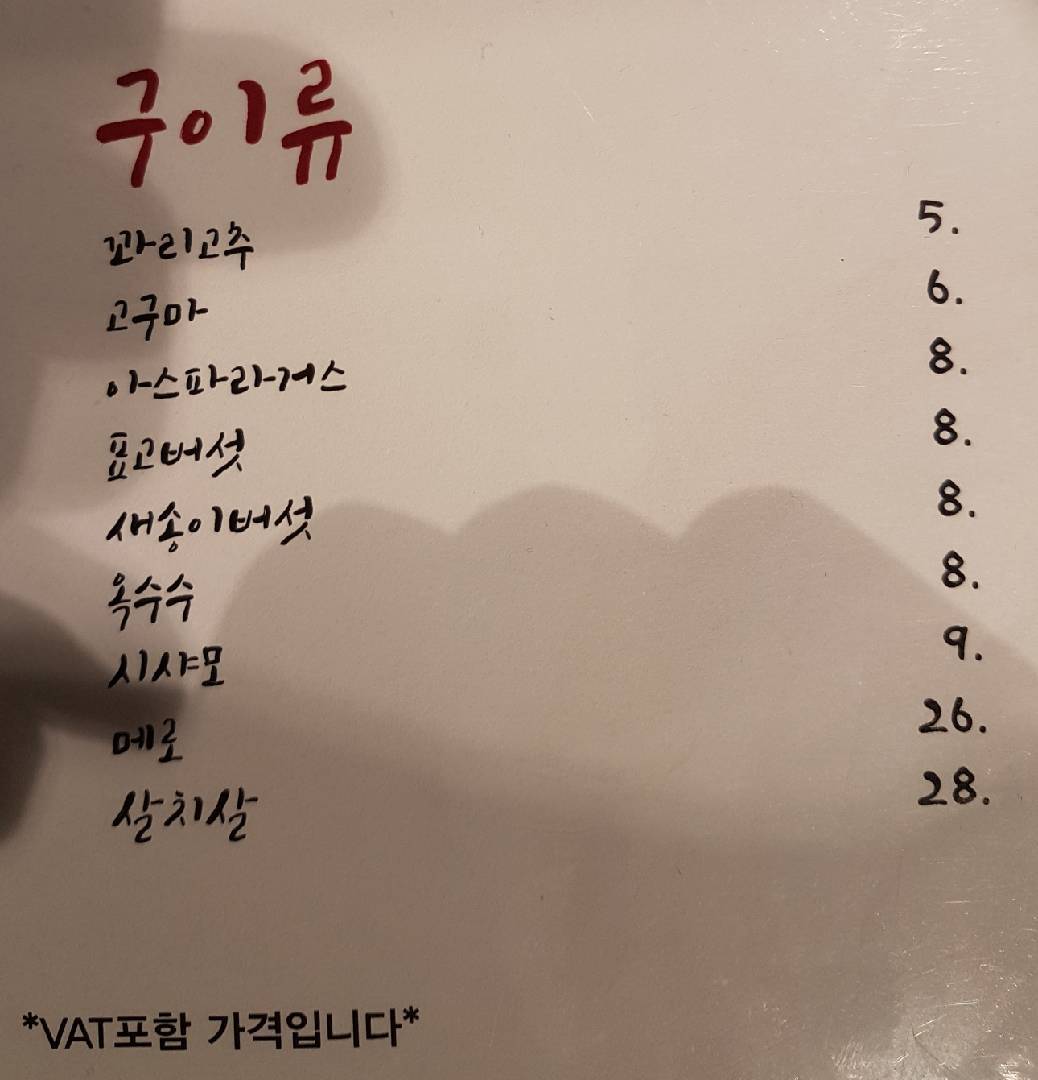 구이류
꽈리고추 5.
고구마 6.
아스파라거스 8.
표고버섯 8.
새송이버섯 8.
옥수수 8.
시샤모 9.
메로 26.
살치살 28.
*VAT포함 가격입니다*